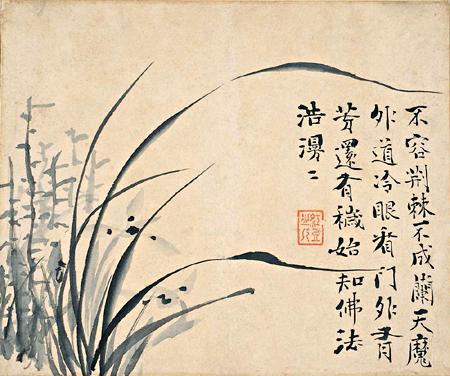 不容荆棘不成蘭天魔
外道冷眼看门外有
芳還有穢始知佛法
浩漫〻